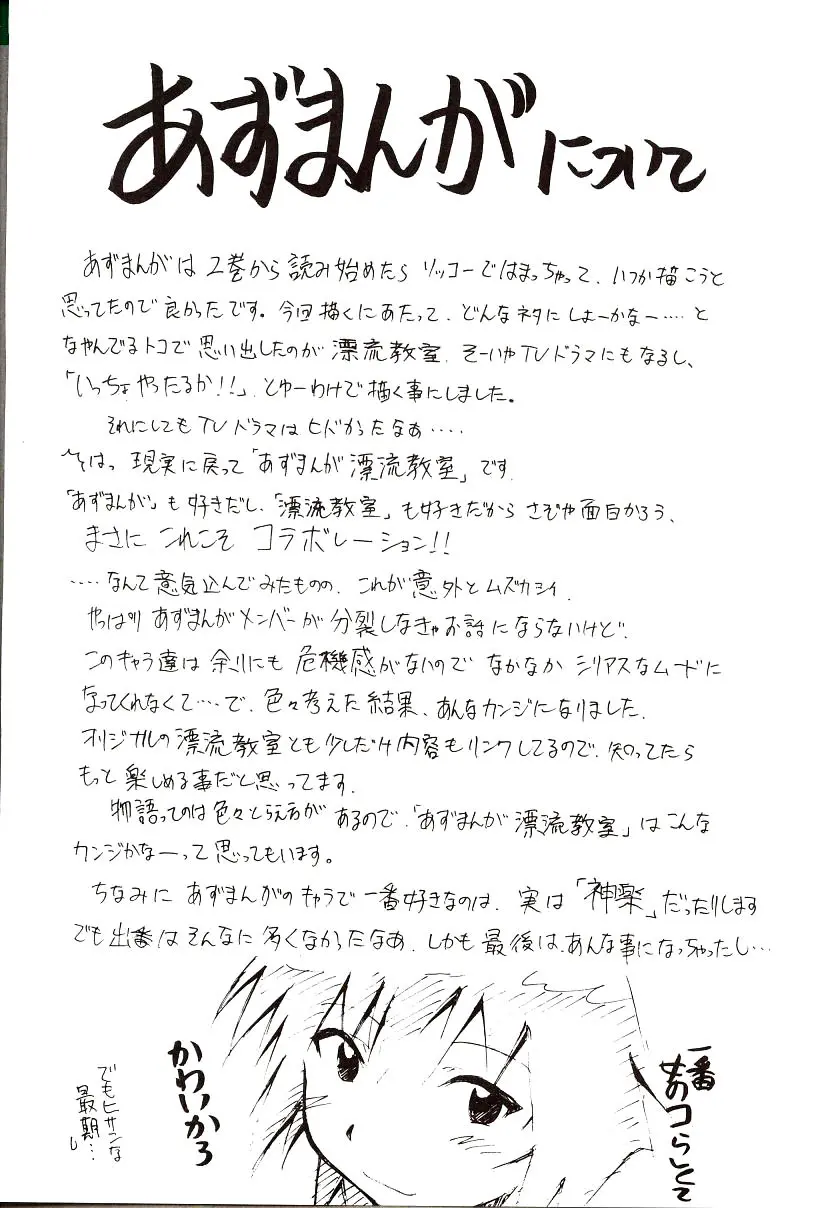 あずまんがについて
あずまんがは2巻から読み始めたらソッコーではまっちゃって、いつか描こうと
思ってたので良かったです。今回描くにあたって、どんなネタにしよーかなー‥‥と
なやんでるトコで思い出したのが漂流教室、そーいやTVドラマにもなるし、
「いっちょやったるか!!」とゆーわけで描く事にしました。
それにしてもTVドラマはヒドかったなあ‥‥
現実に戻って「あずまんが漂流教室」です。
「あずまんが」も好きだし、「漂流教室」も好きだからさぞや面白かろう、
まさにこれこそコラボレーション!!
‥‥なんて意気込んでみたものの、これが意外とムズカシイ。
やっぱりあずまんがメンバーが分裂しなきゃお話にならないけど、
このキャラ達は余りにも危機感がないのでなかなかシリアスなムードに
なってくれなくて‥‥で、色々考えた結果、あんなカンジになりました。
オリジナルの漂流教室とも少しだけ内容もリンクしてるので、知ってたら
もっと楽しめる事だと思ってます。
物語ってのは色々とらえ方があるので、「あずまんが漂流教室」はこんな
カンジかなーって思ってもいます。
ちなみにあずまんがのキャラで一番好きなのは、実は「神楽」だったりします
でも出番はそんなに多くなかったなあ、しかも最後は、あんな事になっちゃったし‥‥
一番
オコらしくて
かわいかろ
でもヒサンな
最期‥‥